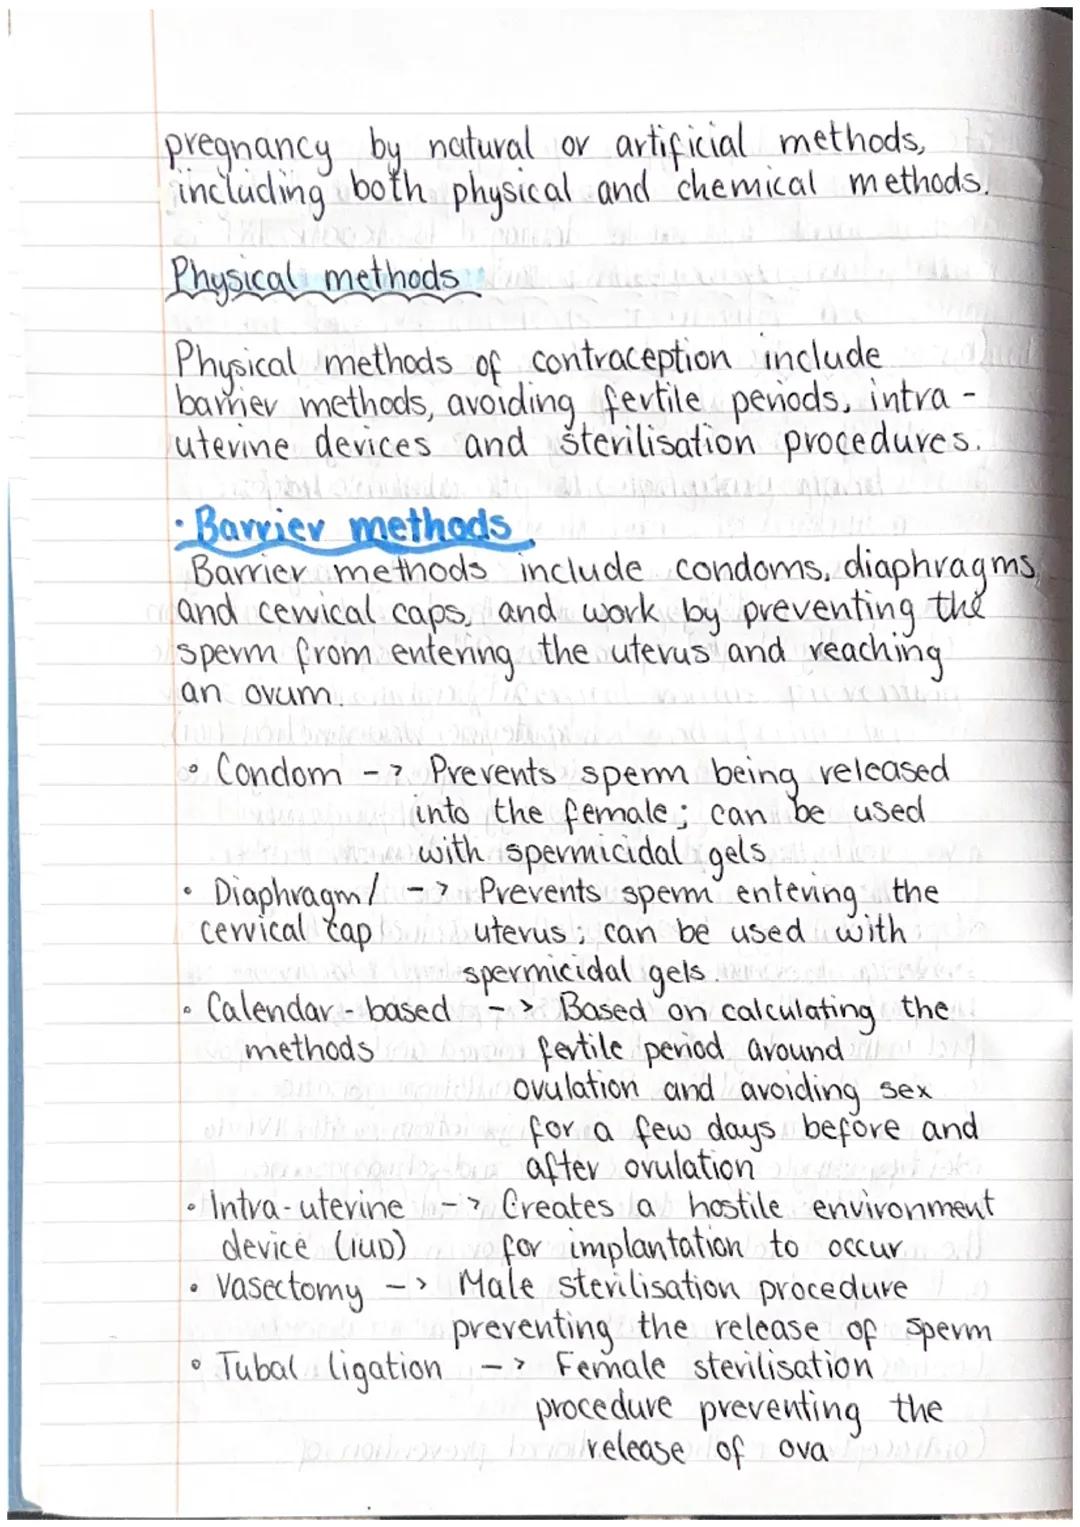 pregnancy by natural or artificial methods,
including both physical and chemical methods.
Physical methods
Physical methods of contraception include
barrier methods, avoiding fertile periods, intra-
uterine devices and sterilisation procedures.
• Barrier methods
Barrier methods include condoms, diaphragms
and cervical caps, and work by preventing the
sperm from entering the uterus and reaching
an ovum.
• Condom -> Prevents sperm being released
into the female; can be used
with spermicidal gels
• Diaphragm/ -> Prevents sperm entering the
cervical cap uterus; can be used with
spermicidal gels.
• Calendar-based -> Based on calculating the
methods fertile period around
ovulation and avoiding sex
for a few days before and
after ovulation
• Intra-uterine -> Creates a hostile environment
device (IUD) for implantation to occur
• Vasectomy -> Male sterilisation procedure
preventing the release of sperm
• Tubal ligation -> Female sterilisation
procedure preventing the
release of ova